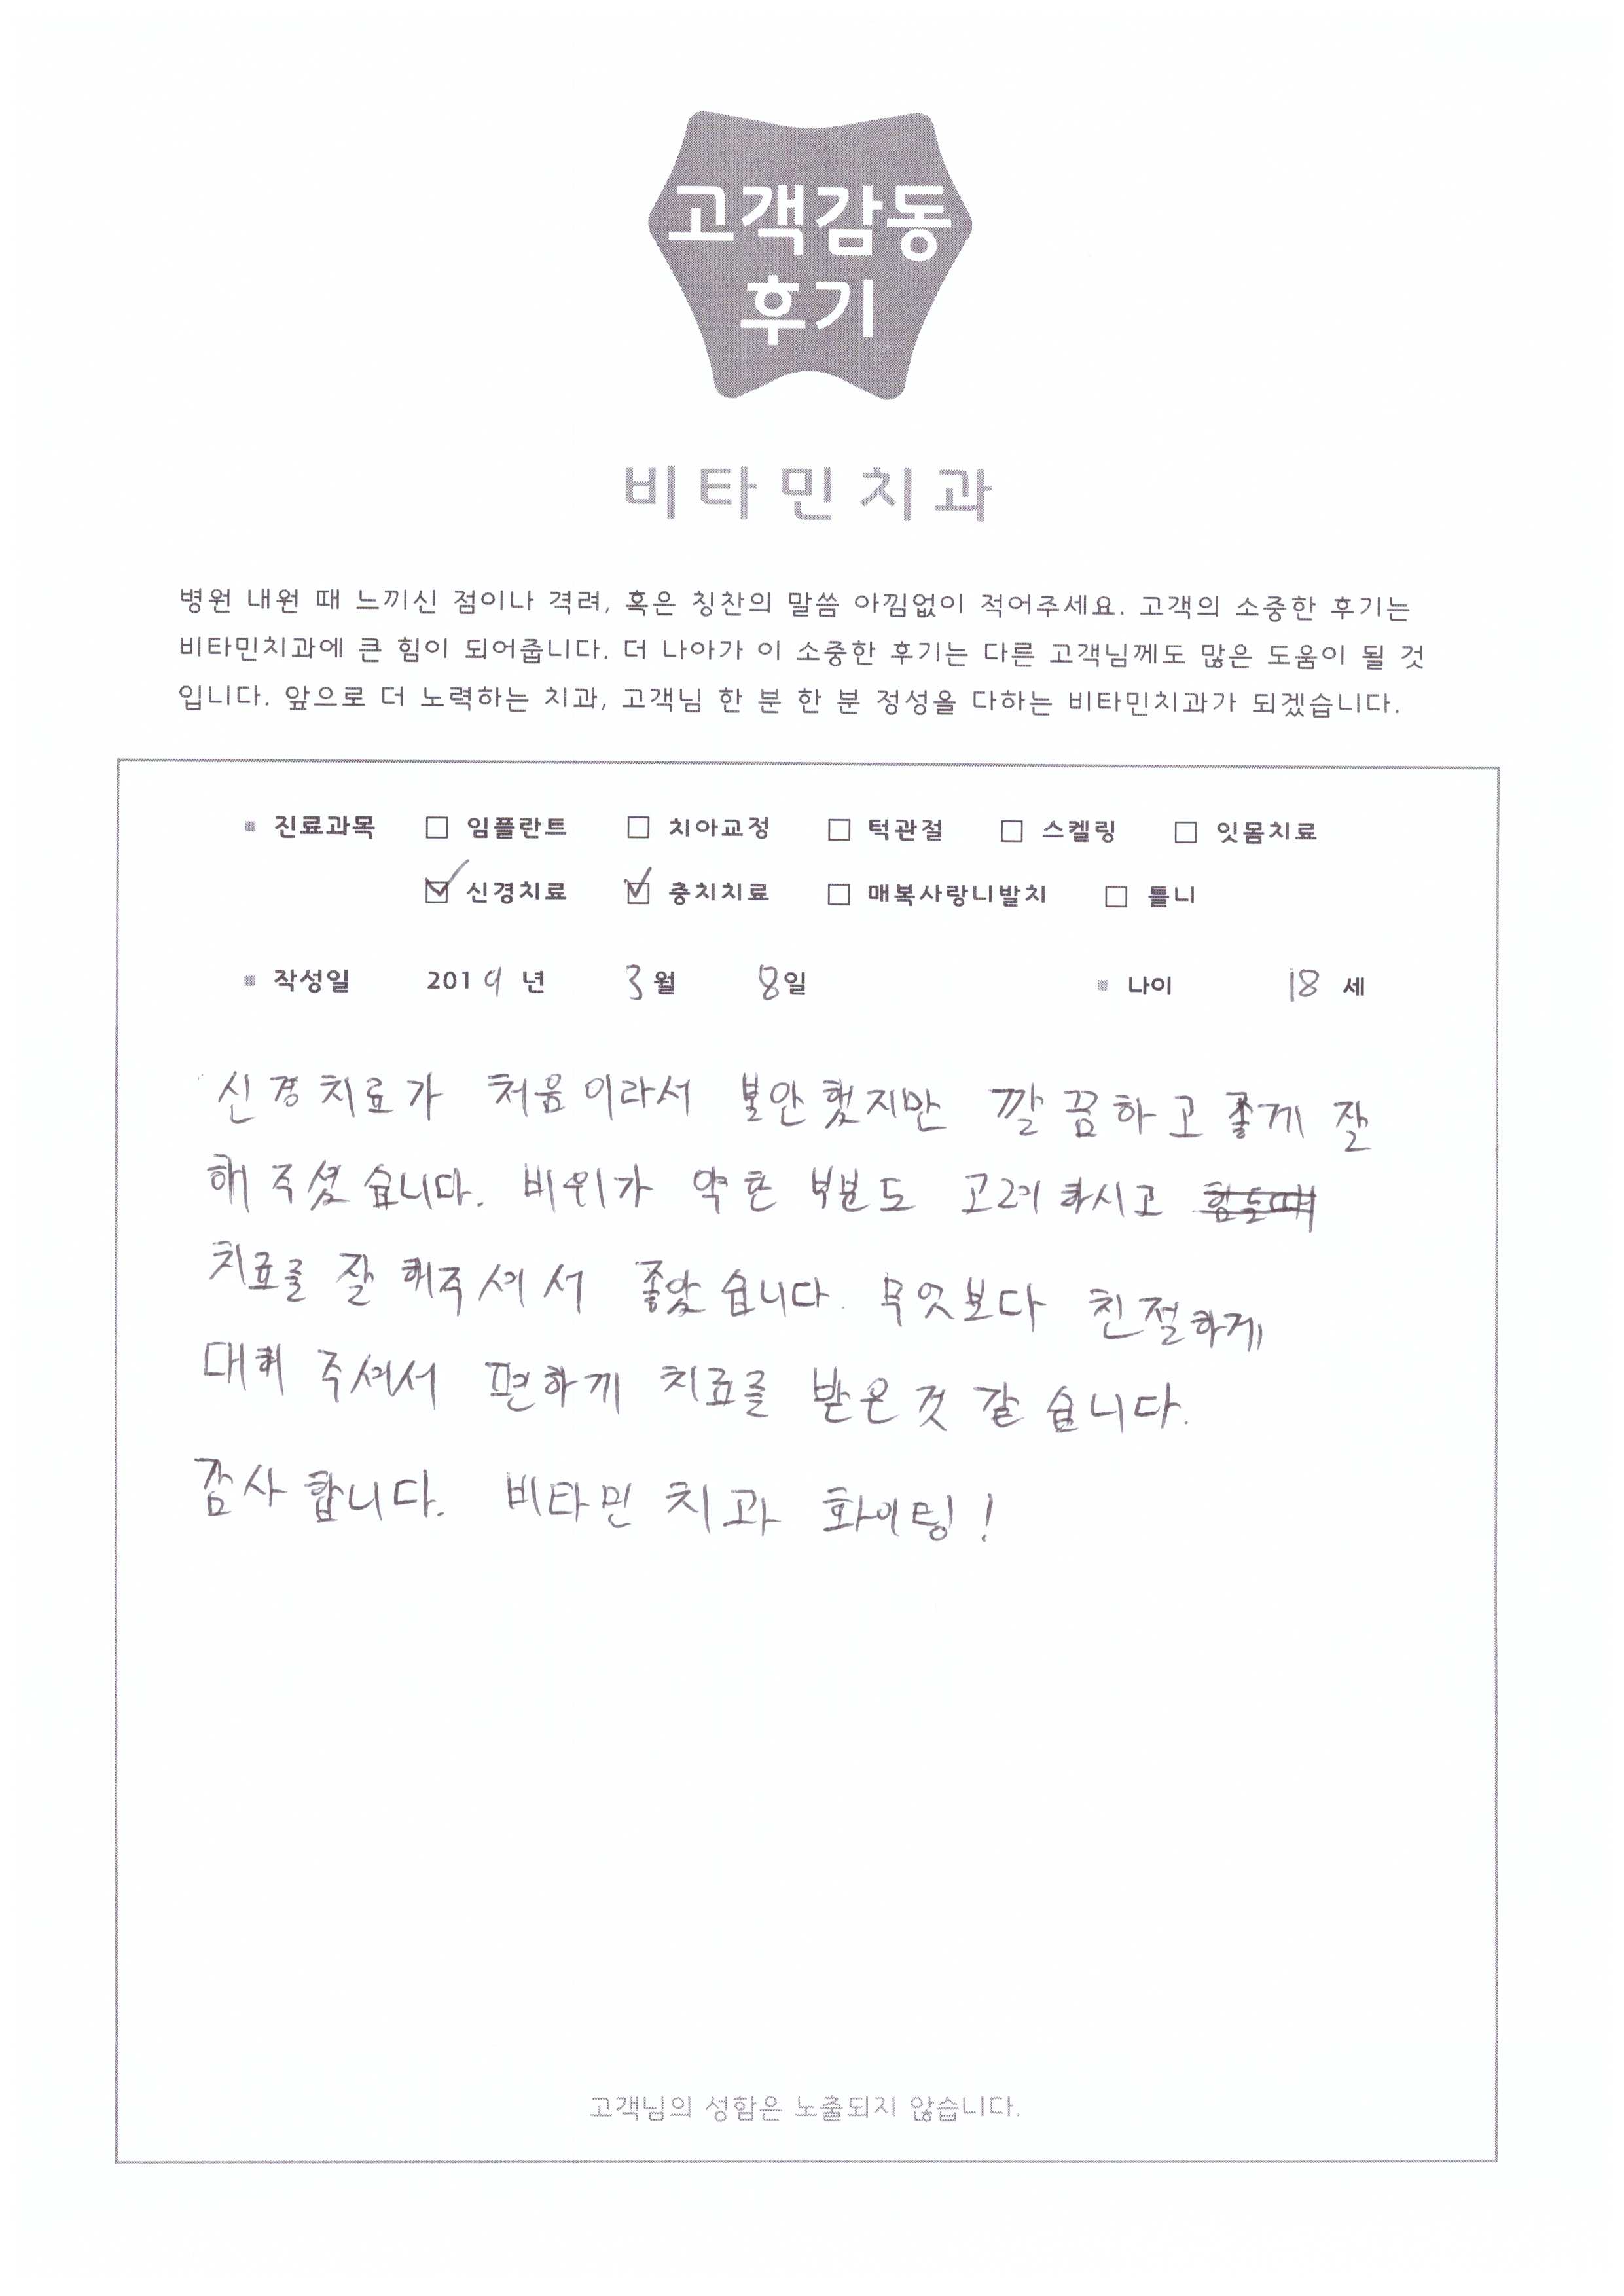 고객감동
후기
비타민치과
병원 내원 때 느끼신 점이나 격려, 혹은 칭찬의 말씀 아낌없이 적어주세요. 고객의 소중한 후기는
비타민치과에 큰 힘이 되어줍니다. 더 나아가 이 소중한 후기는 다른 고객님께도 많은 도움이 될 것
입니다. 앞으로 더 노력하는 치과, 고객님 한 분 한 분 정성을 다하는 비타민치과가 되겠습니다.
진료과목 임플란트 치아교정 턱관절 스켈링 잇몸치료
신경치료 충치치료 매복사랑니발치 틀니
작성일 2019 년 3월 8일 나이 18 세
신경치료가 처음이라서 불안했지만 깔끔하고 좋게 잘
해 주셨습니다. 비위가 약한 부분도 고려하시고
치료를 잘 해주셔서 좋았습니다. 무엇보다 친절하게
대해 주셔서 편하게 치료를 받은것 같습니다.
감사합니다. 비타민 치과 화이팅!
고객님의 성함은 노출되지 않습니다.